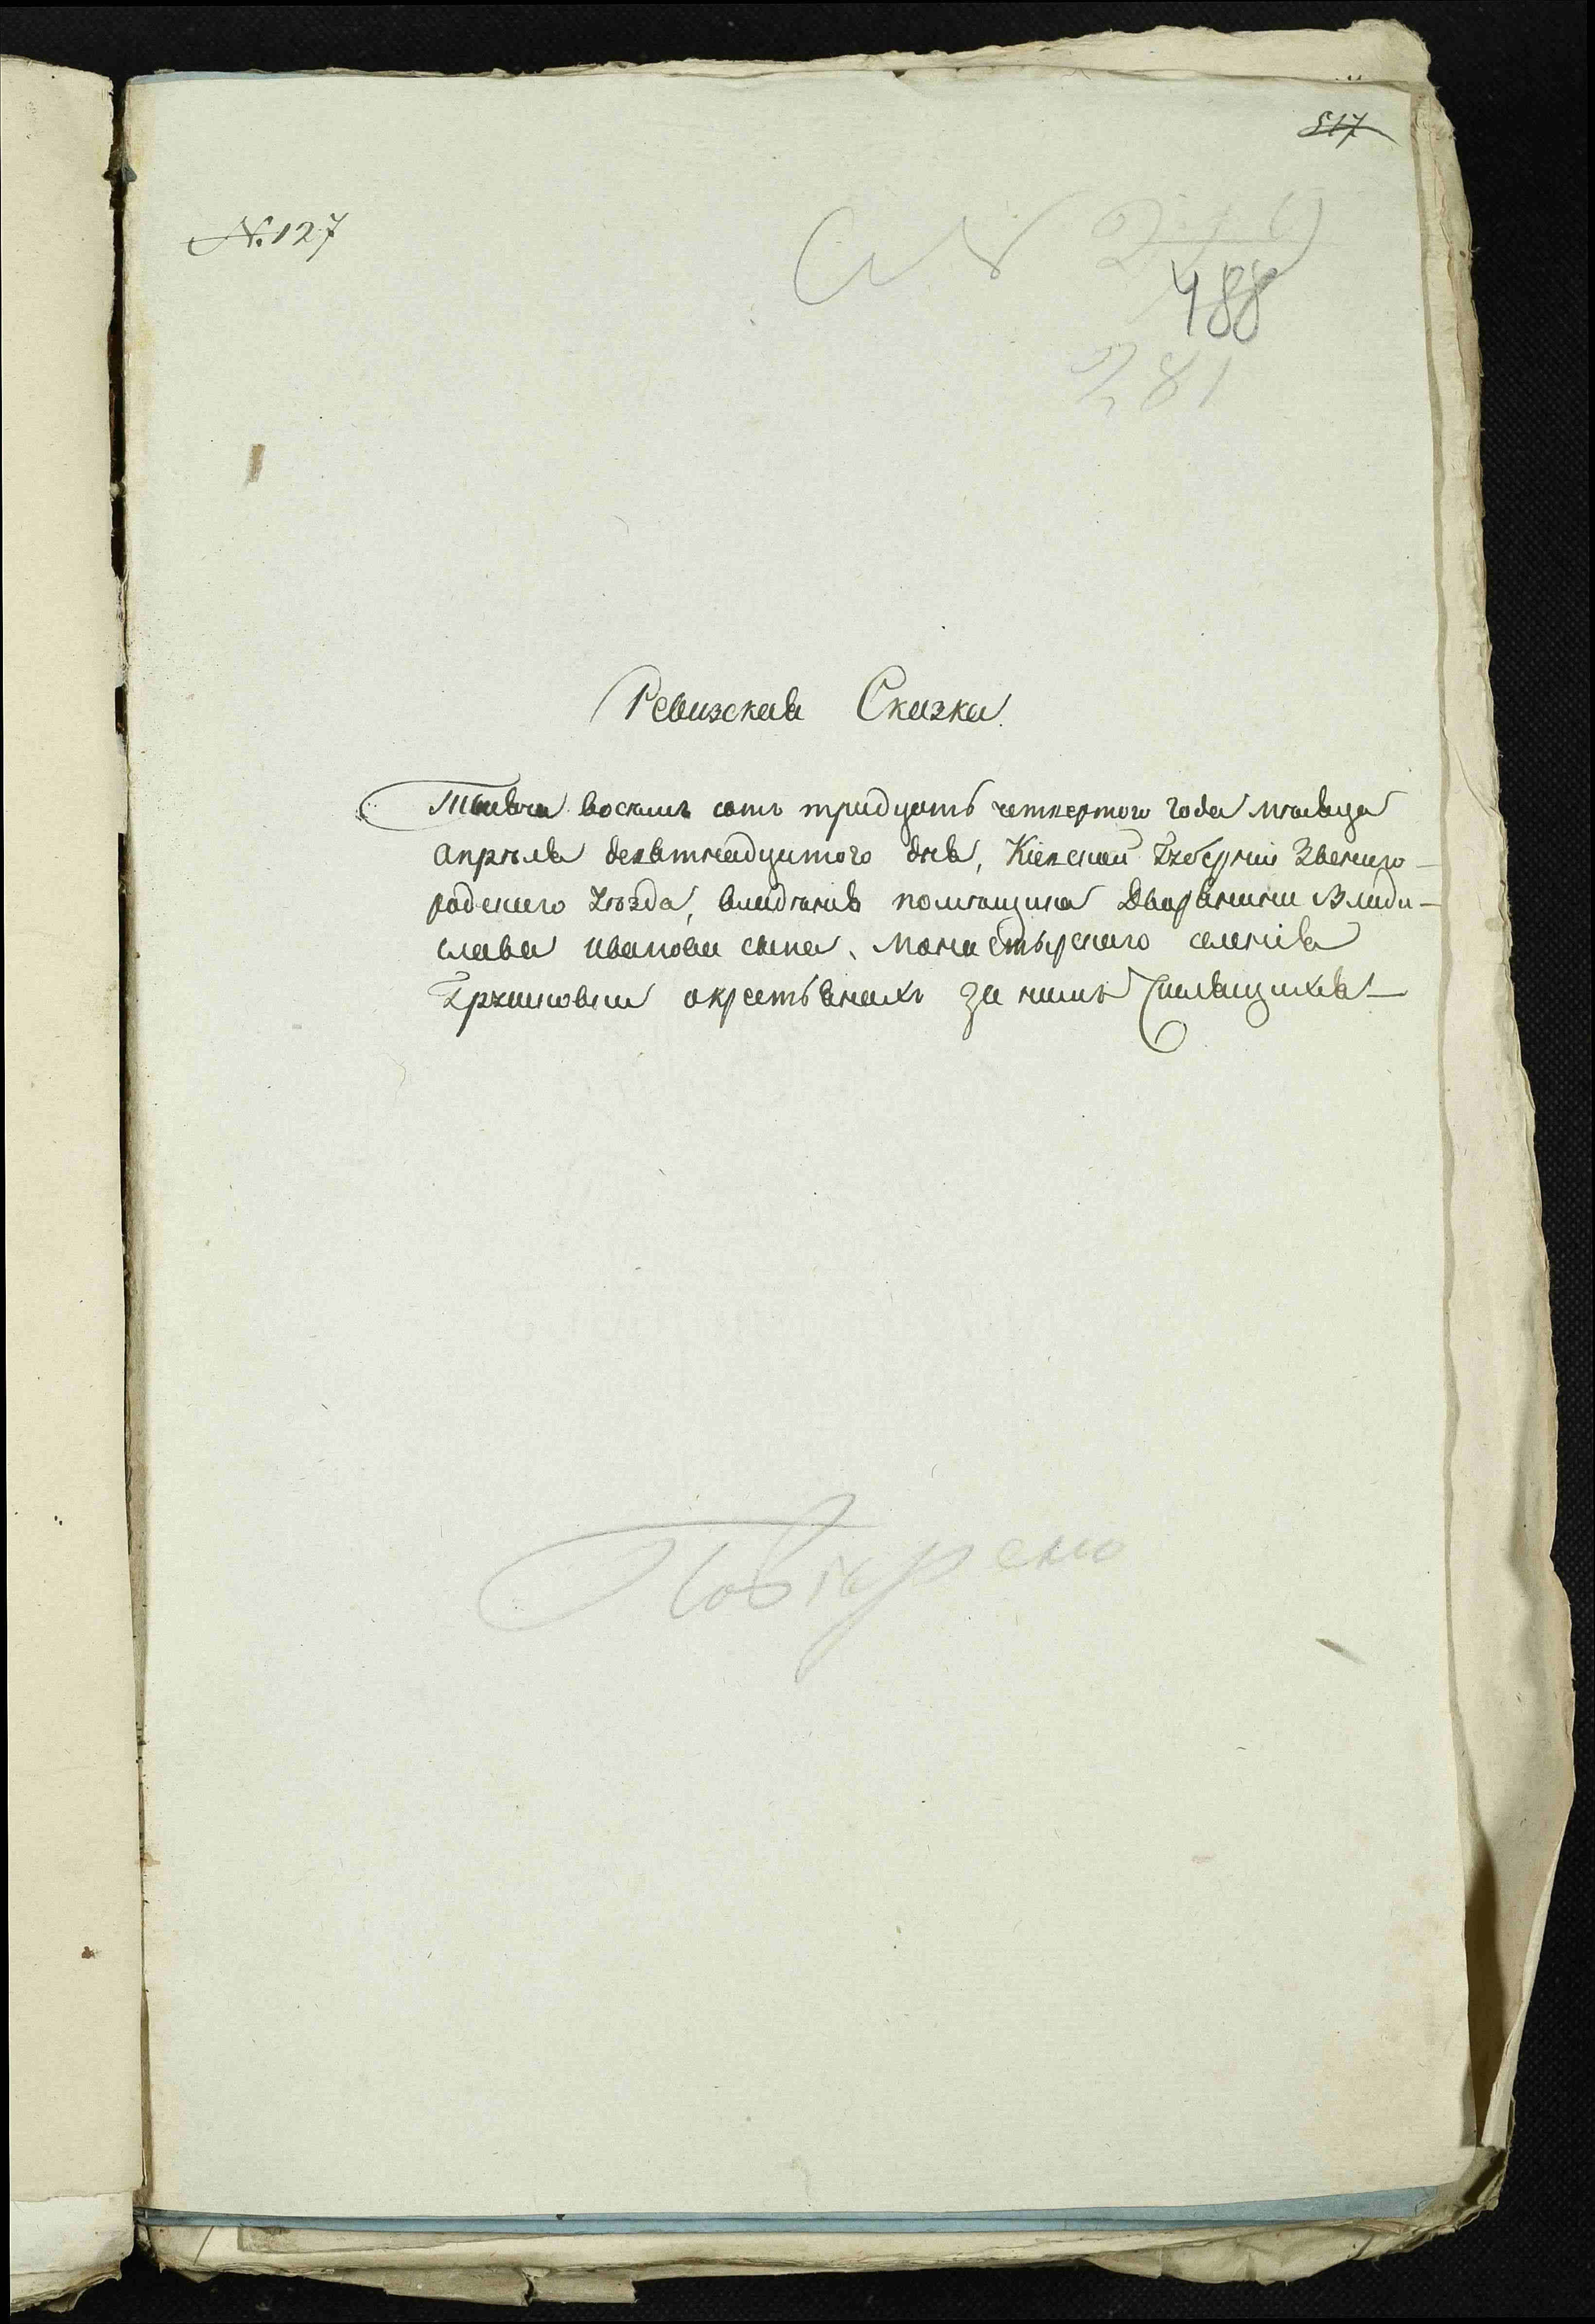 517
N. 127
N
488
281
Ревизская Сказка.
Тысяча восемь сотъ тридцать четвертого года месяца
апреля девятнадцатого дня, Кіевской Губерніи Звениго-
родского Уезда, владѣнія помѣщика Дворянина Влади-
слава иванова сына, Монастырского селенія
окрестьянахъ за нимъ
Повѣрено